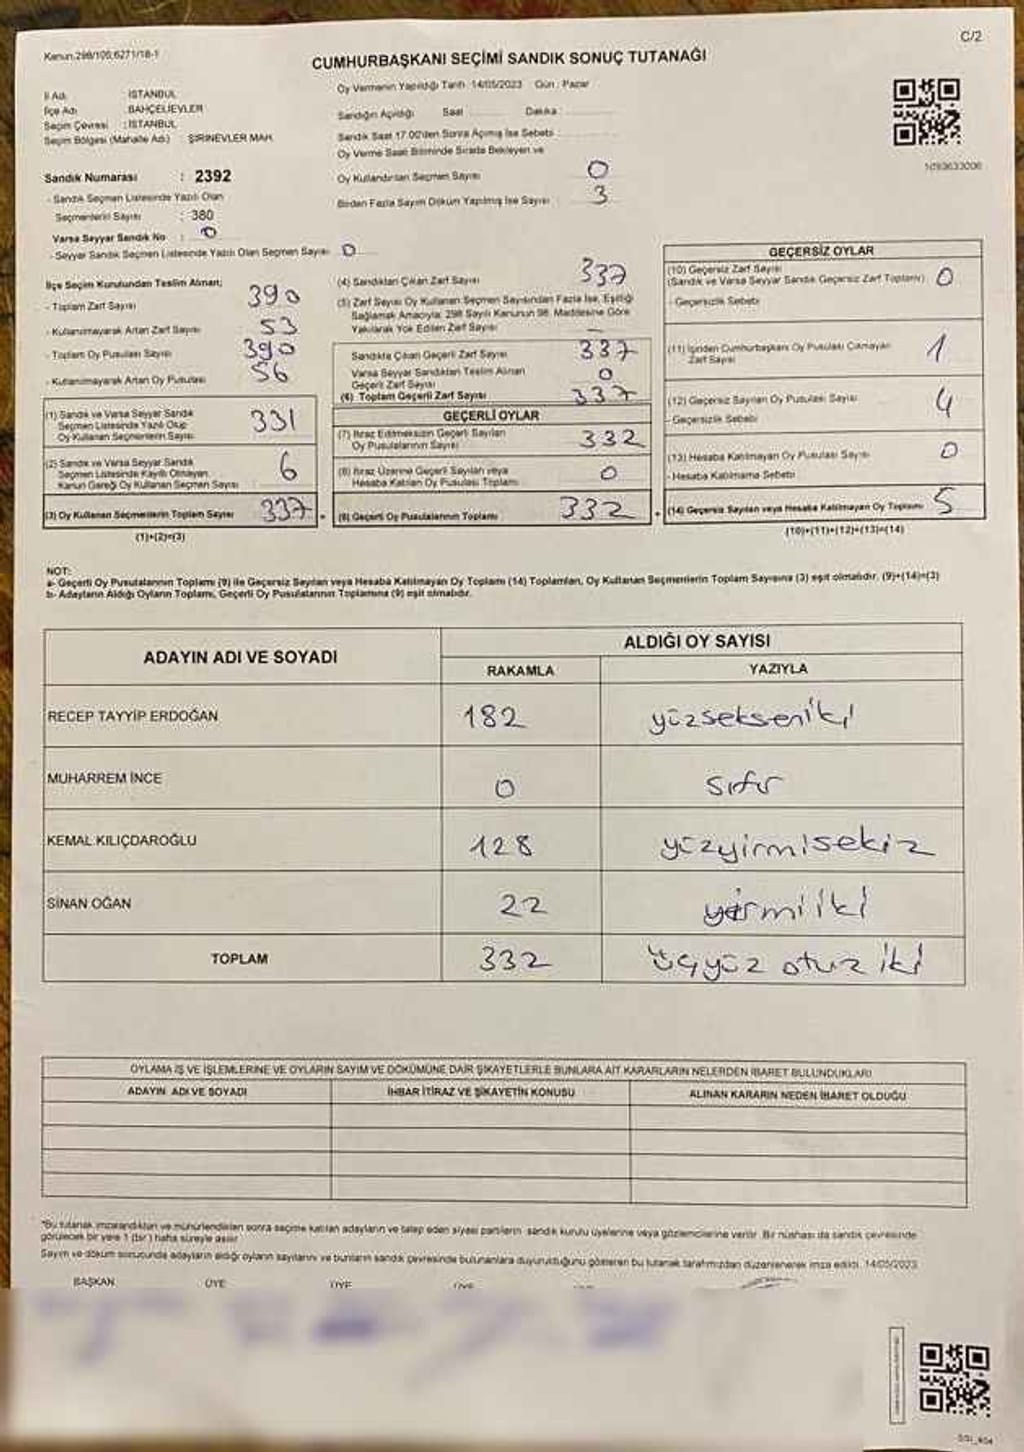 Kanun:298/106;6271/18-1
C/2
CUMHURBAŞKANI SEÇİMİ SANDIK SONUÇ TUTANAĞI
İl Adı : İSTANBUL
İlçe Adı : BAHÇELİEVLER
Seçim Çevresi : İSTANBUL
Seçim Bölgesi (Mahalle Adı) : ŞİRİNEVLER MAH.
Oy Vermenin Yapıldığı Tarih :14/05/2023 Gün : Pazar
Sandığın Açıldığı Saat Dakika :
Sandık Saat 17.00'den Sonra Açılmış İse Sebebi :
Oy Verme Saati Bitiminde Sırada Bekleyen ve
Oy Kullandırılan Seçmen Sayısı 0
Birden Fazla Sayım Döküm Yapılmış İse Sayısı 3
Sandık Numarası : 2392
- Sandık Seçmen Listesinde Yazılı Olan
Seçmenlerin Sayısı : 380
Varsa Seyyar Sandık No : 0
- Seyyar Sandık Seçmen Listesinde Yazılı Olan Seçmen Sayısı 0
İlçe Seçim Kurulundan Teslim Alınan;
- Toplam Zarf Sayısı 390
- Kullanılmayarak Artan Zarf Sayısı 53
- Toplam Oy Pusulası Sayısı 390
- Kullanılmayarak Artan Oy Pusulası 56
(1) Sandık ve Varsa Seyyar Sandık
Seçmen Listesinde Yazılı Olup
Oy Kullanan Seçmenlerin Sayısı 331
(2) Sandık ve Varsa Seyyar Sandık
Seçmen Listesinde Kayıtlı Olmayan
Kanun Gereği Oy Kullanan Seçmen Sayısı 6
(3) Oy Kullanan Seçmenlerin Toplam Sayısı 337
(1)+(2)=(3)
(4) Sandıktan Çıkan Zarf Sayısı 337
(5) Zarf Sayısı Oy Kullanan Seçmen Sayısından Fazla İse, Eşitliği
Sağlamak Amacıyla, 298 Sayılı Kanunun 98. Maddesine Göre
Yakılarak Yok Edilen Zarf Sayısı —
Sandıkta Çıkan Geçerli Zarf Sayısı 337
Varsa Seyyar Sandıktan Teslim Alınan
Geçerli Zarf Sayısı 0
(6) Toplam Geçerli Zarf Sayısı 337
GEÇERLİ OYLAR
(7) İtiraz Edilmeksizin Geçerli Sayılan
Oy Pusulalarının Sayısı 332
(8) İtiraz Üzerine Geçerli Sayılan veya
Hesaba Katılan Oy Pusulası Toplamı 0
(9) Geçerli Oy Pusulalarının Toplamı 332
GEÇERSİZ OYLAR
(10) Geçersiz Zarf Sayısı
(Sandık ve Varsa Seyyar Sandık Geçersiz Zarf Toplamı) 0
- Geçersizlik Sebebi
(11) İçinden Cumhurbaşkanı Oy Pusulası Çıkmayan
Zarf Sayısı 1
(12) Geçersiz Sayılan Oy Pusulası Sayısı 4
- Geçersizlik Sebebi
(13) Hesaba Katılmayan Oy Pusulası Sayısı 0
- Hesaba Katılmama Sebebi
(14) Geçersiz Sayılan veya Hesaba Katılmayan Oy Toplamı 5
(10)+(11)+(12)+(13)=(14)
NOT:
a- Geçerli Oy Pusulalarının Toplamı (9) ile Geçersiz Sayılan veya Hesaba Katılmayan Oy Toplamı (14) Toplamları, Oy Kullanan Seçmenlerin Toplam Sayısına (3) eşit olmalıdır. (9)+(14)=(3)
b- Adayların Aldığı Oyların Toplamı, Geçerli Oy Pusulalarının Toplamına (9) eşit olmalıdır.
ADAYIN ADI VE SOYADI ALDIĞI OY SAYISI
RAKAMLA YAZIYLA
RECEP TAYYİP ERDOĞAN 182 yüzsekseniki
MUHARREM İNCE 0 sıfır
KEMAL KILIÇDAROĞLU 128 yüzyirmisekiz
SİNAN OĞAN 22 yirmiiki
TOPLAM 332 üçyüz otuz iki
OYLAMA İŞ VE İŞLEMLERİNE VE OYLARIN SAYIM VE DÖKÜMÜNE DAİR ŞİKAYETLERLE BUNLARA AİT KARARLARIN NELERDEN İBARET BULUNDUKLARI
ADAYIN ADI VE SOYADI İHBAR İTİRAZ VE ŞİKAYETİN KONUSU ALINAN KARARIN NEDEN İBARET OLDUĞU
*Bu tutanak imzalandıktan ve mühürlendikten sonra seçime katılan adayların ve talep eden siyasi partilerin sandık kurulu üyelerine veya gözlemcilerine verilir. Bir nüshası da sandık çevresinde
görülecek bir yere 1 (bir) hafta süreyle asılır.
Sayım ve döküm sonucunda adayların aldığı oyların sayılarını ve bunların sandık çevresinde bulunanlara duyurulduğunu gösteren bu tutanak tarafımızdan düzenlenerek imza edildi. 14/05/2023
BAŞKAN ÜYE ÜYE ÜYE